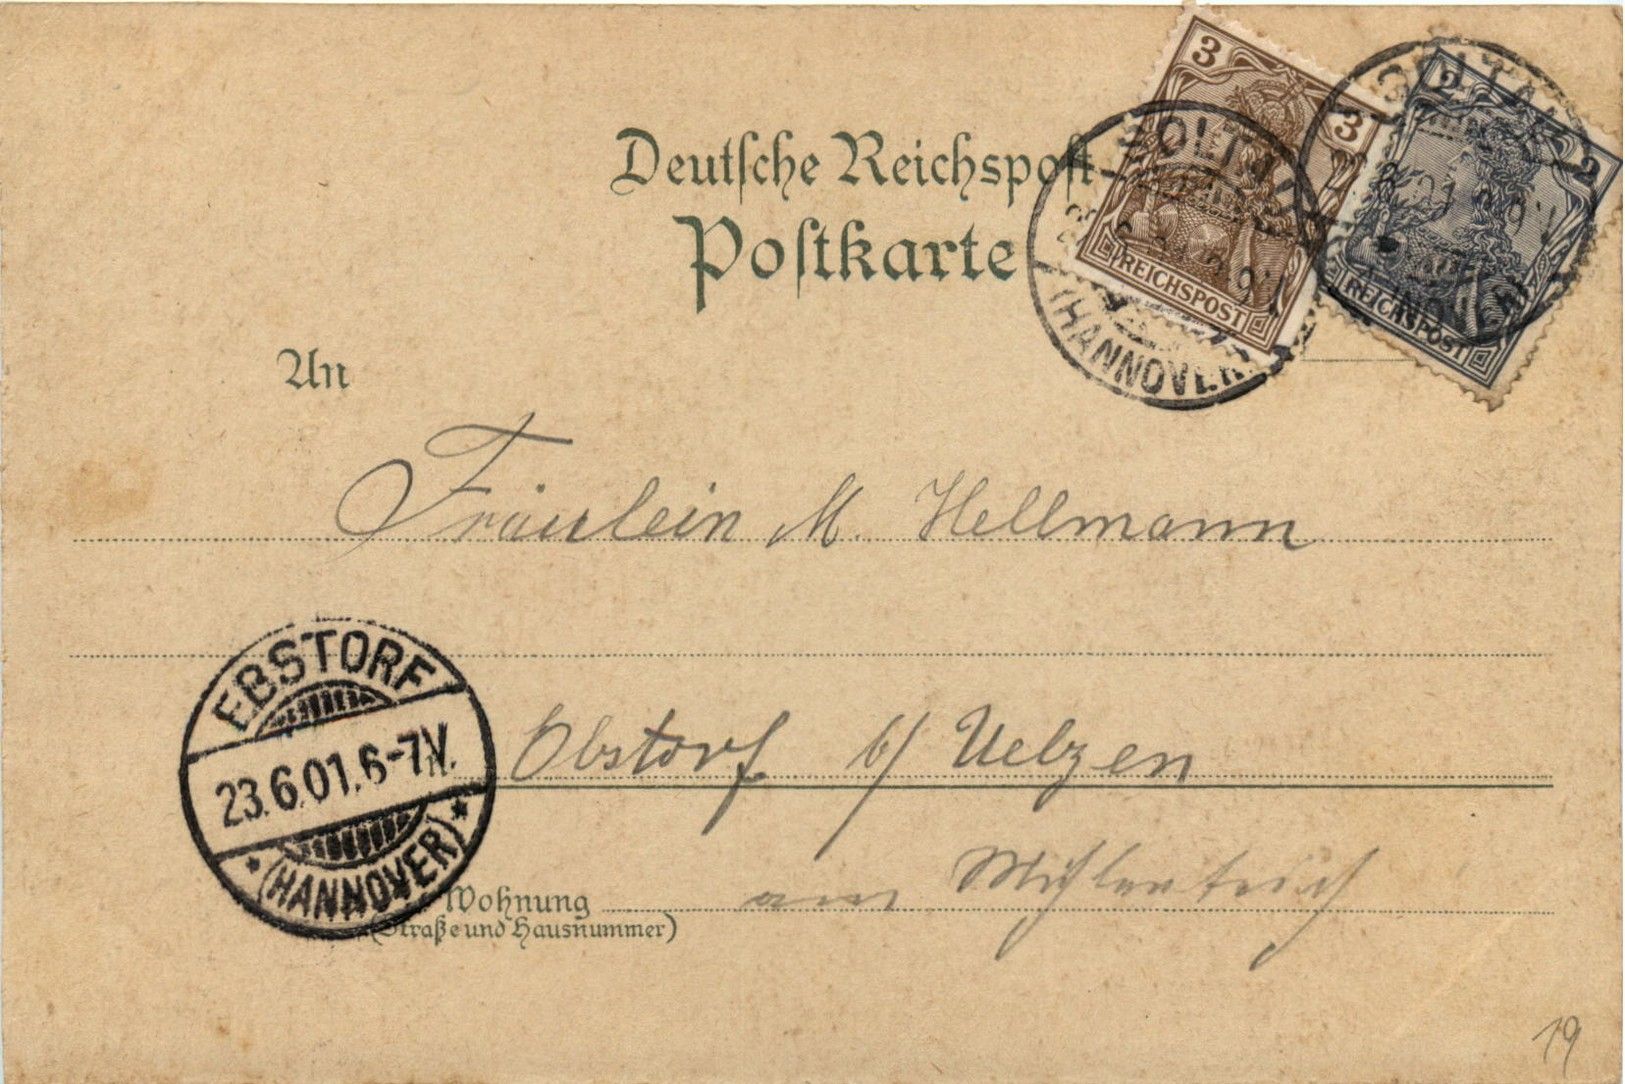 Deutsche Reichspost
Postkarte
3
3
REICHSPOST
2
2
REICHSPOST
(HANNOVER)
An
Fräulein M. Hellmann
EBSTORF
23.6.01.6-7V.
(HANNOVER)
Obstorf b/ Uelzen
Wohnung
(Straße und Hausnummer)
am Mühlenteich
19